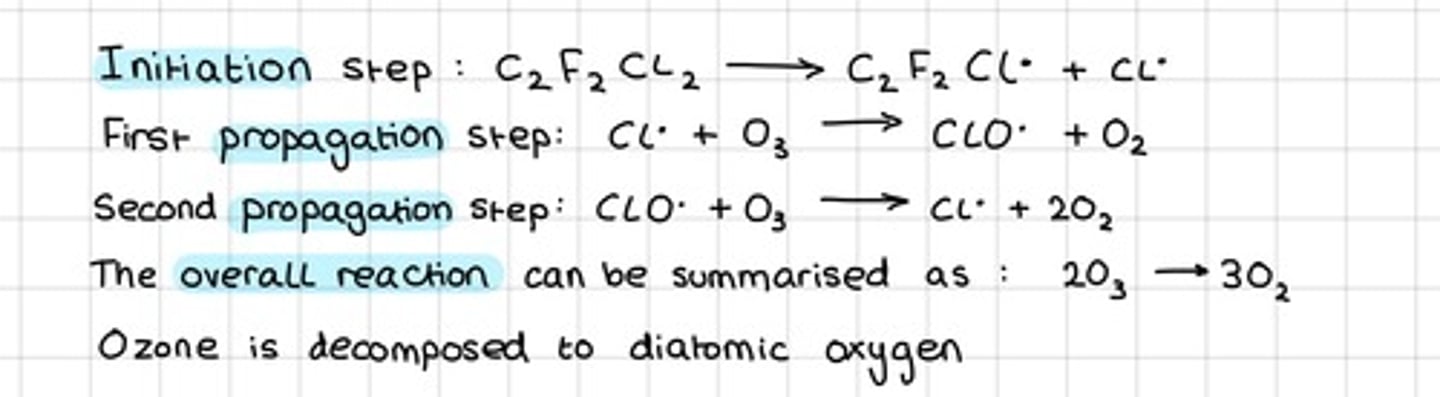 Initiation step : C₂F₂CL₂ ⟶ C₂F₂Cl• + CL•
First propagation step: Cl• + O₃ ⟶ CLO• + O₂
Second propagation step: CLO• + O₃ ⟶ CL• + 2O₂
The overall reaction can be summarised as : 2O₃ ⟶ 3O₂
Ozone is decomposed to diatomic oxygen